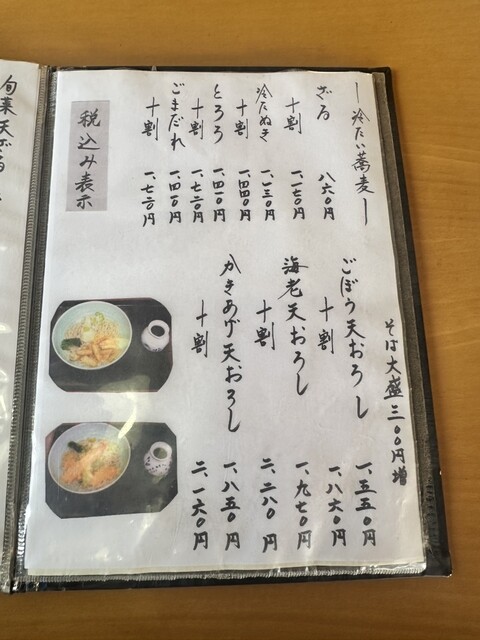 ―冷たい蕎麦―
ざる 八六〇円
十割 一、一七〇円
冷たぬき 一、一三〇円
十割 一、四四〇円
とろろ 一、四一〇円
十割 一、七二〇円
ごまだれ 一、四一〇円
十割 一、七二〇円
税込み表示
そば大盛三〇〇円増
ごぼう天おろし 一、五五〇円
十割 一、八六〇円
海老天おろし 一、九七〇円
十割 二、二八〇円
かきあげ天おろし 一、八五〇円
十割 二、一六〇円
旬菜天ざる